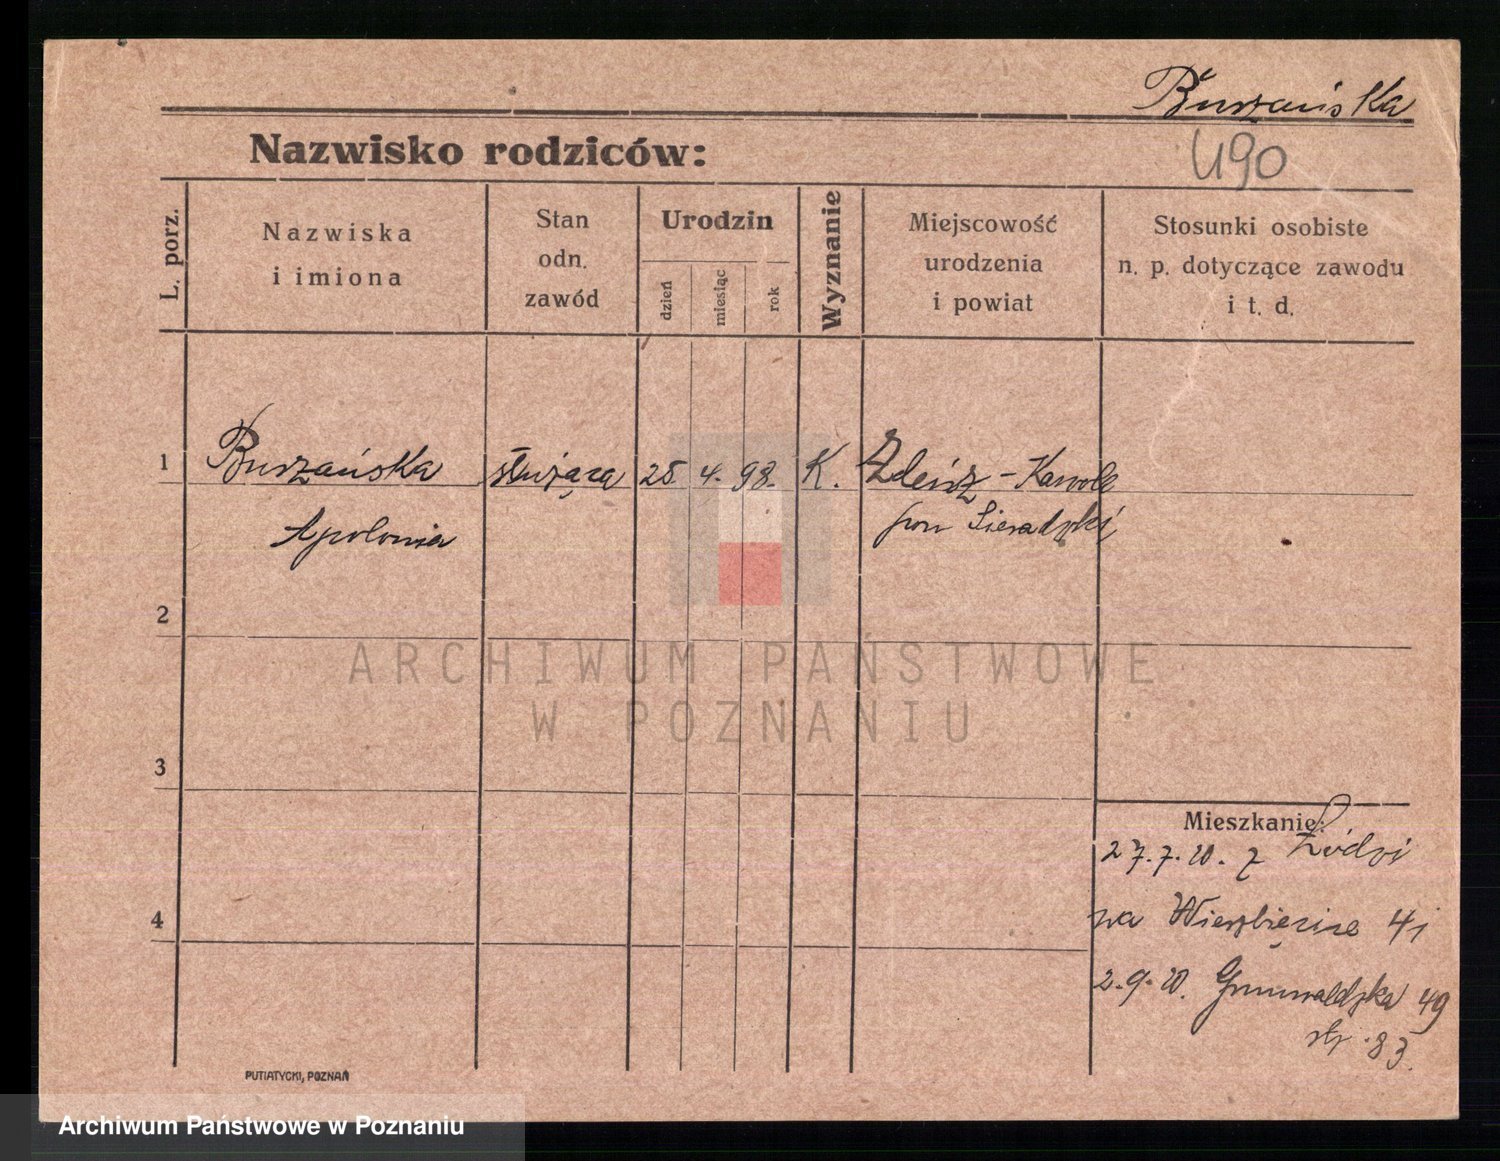 Burzańska
490
Nazwisko rodziców:
L. porz.
Nazwiska
i imiona
Stan
odn.
zawód
Urodzin
dzień
miesiąc
rok
Wyznanie
Miejscowość
urodzenia
i powiat
Stosunki osobiste
n. p. dotyczące zawodu
i t. d.
1 Burzańska służąca 25 4. 98. K.
Apolonia
pow Sieradzki
2
ARCHIWUM PAŃSTWOWE
W POZNANIU
3
Mieszkanie:
27.7.20. z Łodzi
na Wierzbięcice 41
4
2.9.20. Grunwaldzka 49
83.
PUTIATYCKI, POZNAŃ
Archiwum Państwowe w Poznaniu